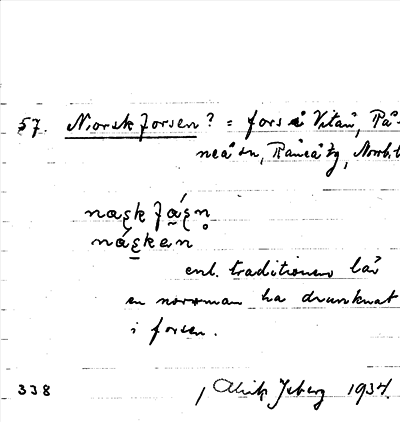 57. Norskforsen? = fors i Vitån, Rå-
neå sn, Råneå tg, Norrb.l
enl. traditionen lär
en norrman ha drunknat
i forsen.
338 Ulrik Isberg 1934.